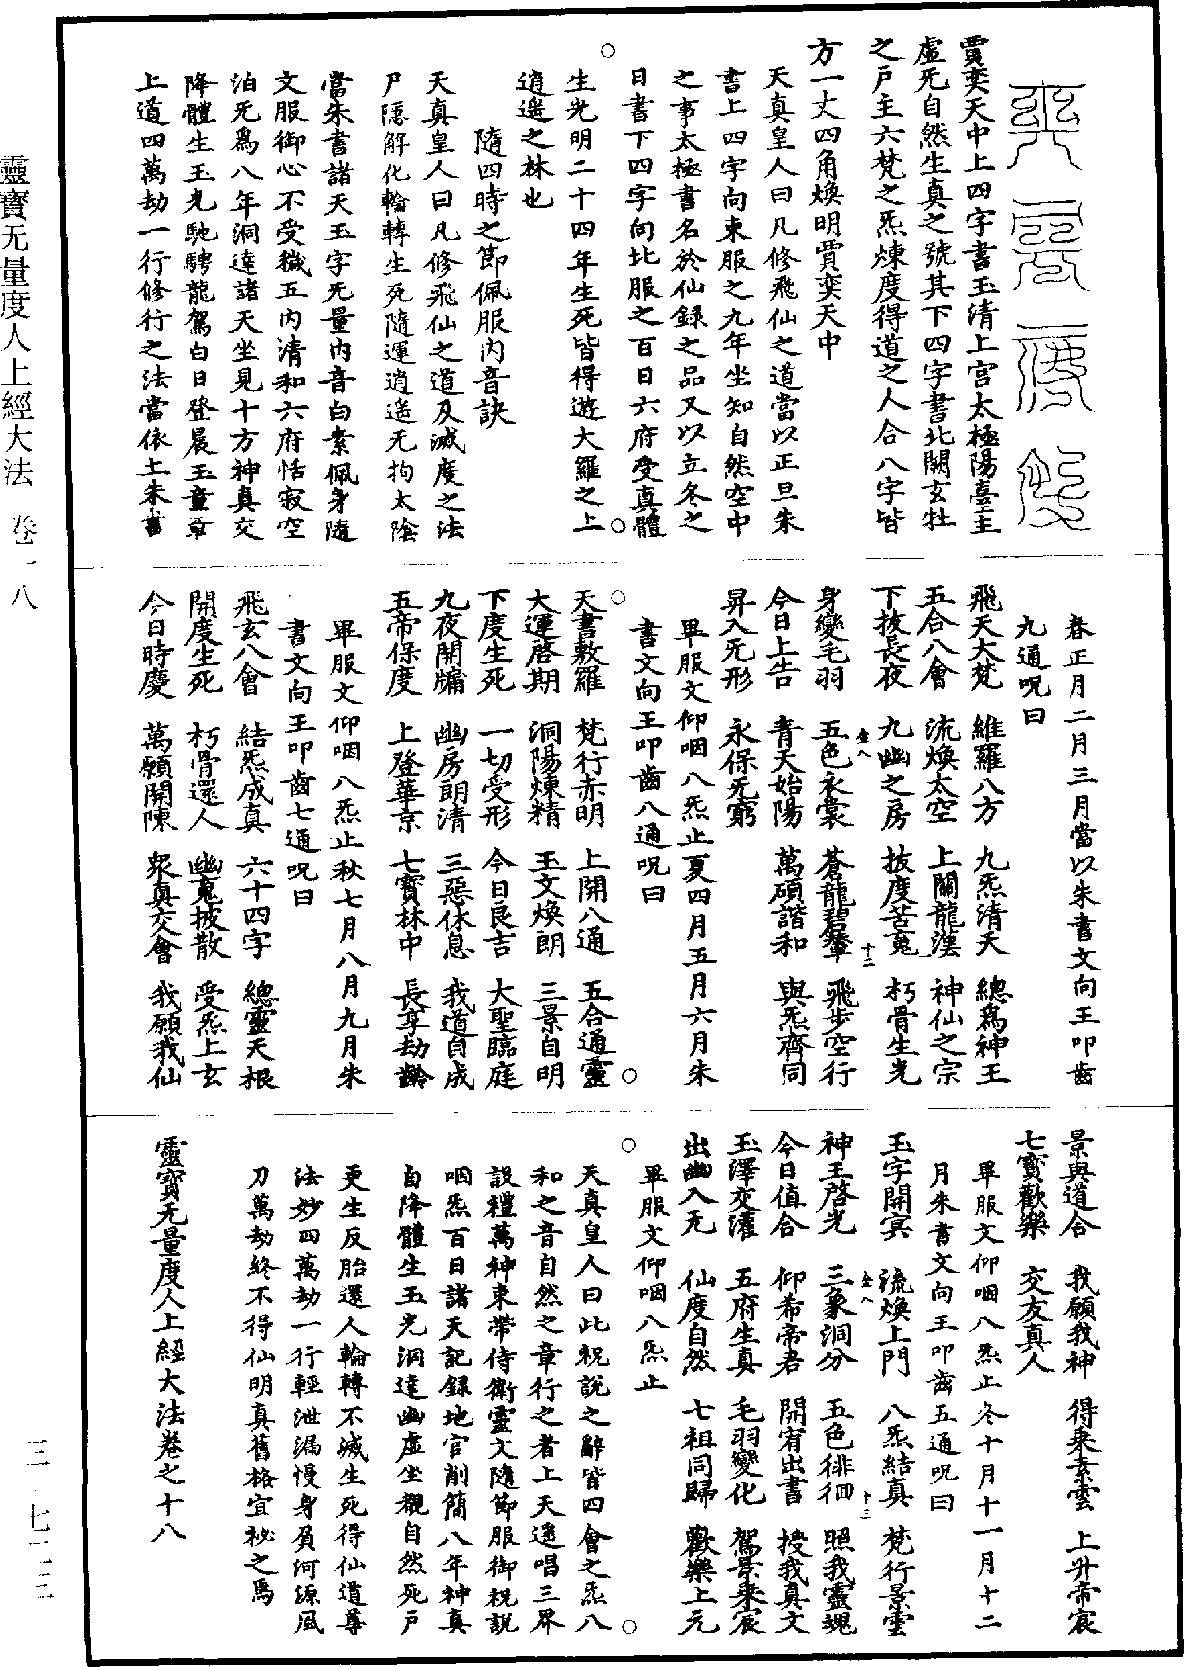 賈奕天中上四字書玉清上宮太極陽臺主
虛无自然生真之號其下四字書北闕玄牡
之戶主六梵之炁煉度得道之人合八字皆
方一丈四角煥明賈奕天中
天真皇人曰凡修飛仙之道當以正旦朱
書上四字向東服之九年坐知自然空中
之事太極書名於仙錄之品又以立冬之
日書下四字向北服之百日六府受真體
生光明二十四年生死皆得遊大羅之上
逍遙之林也
隨四時之節佩服內音訣
天真皇人曰凡修飛仙之道及滅度之法
尸隱解化輪轉生死隨運逍遙无拘太陰
當朱書諸天玉字无量內音白素佩身隨
文服御心不受穢五內清和六府恬寂空
泊无為八年洞達諸天坐見十方神真交
降體生玉光馳騁龍駕白日登晨玉童章
上道四萬劫一行修行之法當依土朱書
春正月二月三月當以朱書文向王叩齒
九通呪曰
飛天大梵　維羅八方　九炁清天　總為神王
五合八會　流煥太空　上闢龍漢　神仙之宗
下披長夜　九幽之房　披度苦䰟　朽骨生光
身變毛羽　五色衣裳　蒼龍碧輦　飛步空行
今日上告　青天始陽　萬碩諧和　與炁齊同
昇入无形　永保无窮
畢服文仰咽八炁止夏四月五月六月朱
書文向王叩齒八通呪曰
天書敷羅　梵行赤明　上開八通　五合通靈
大運啓期　洞陽煉精　玉文煥朗　三景自明
下度生死　一切受形　今日良吉　大聖臨庭
九夜開牖　幽房朗清　三惡休息　我道自成
五帝保度　上登華京　七寶林中　長享劫齡
畢服文仰咽八炁止秋七月八月九月朱
書文向王叩齒七通呪曰
飛玄八會　結炁成真　六十四字　總靈天根
開度生死　朽骨還人　幽䰟披散　受炁上玄
今日時慶　萬願開陳　眾真交會　我願我仙
景與道合　我願我神　得乗素雲　上升帝宸
七寶歡樂　交友真人
畢服文仰咽八炁止冬十月十一月十二
月朱書文向王叩齒五通呪曰
玉字開冥　流煥上門　八炁結真　梵行景雲
神王啓光　三象洞分　五色徘徊　照我靈魂
今日值合　仰希帝君　開宥出書　授我真文
玉澤交灌　五府生真　毛羽變化　駕景乗宸
出幽入无　仙度自然　七祖同歸　歡樂上元
畢服文仰咽八炁止
天真皇人曰此祝說之辭皆四會之炁八
和之音自然之章行之者上天遥唱三界
設禮萬神束帶侍衛靈文隨節服御祝說
咽炁百日諸天記錄地官削簡八年神真
自降體生玉光洞達幽虛坐觀自然死尸
更生反胎還人輪轉不滅生死得仙道尊
法妙四萬劫一行輕泄漏慢身負河源風
刀萬劫終不得仙明真舊格宜祕之焉
靈寶无量度人上經大法卷之十八
靈寶无量度人上經大法　卷一八
三　七一三